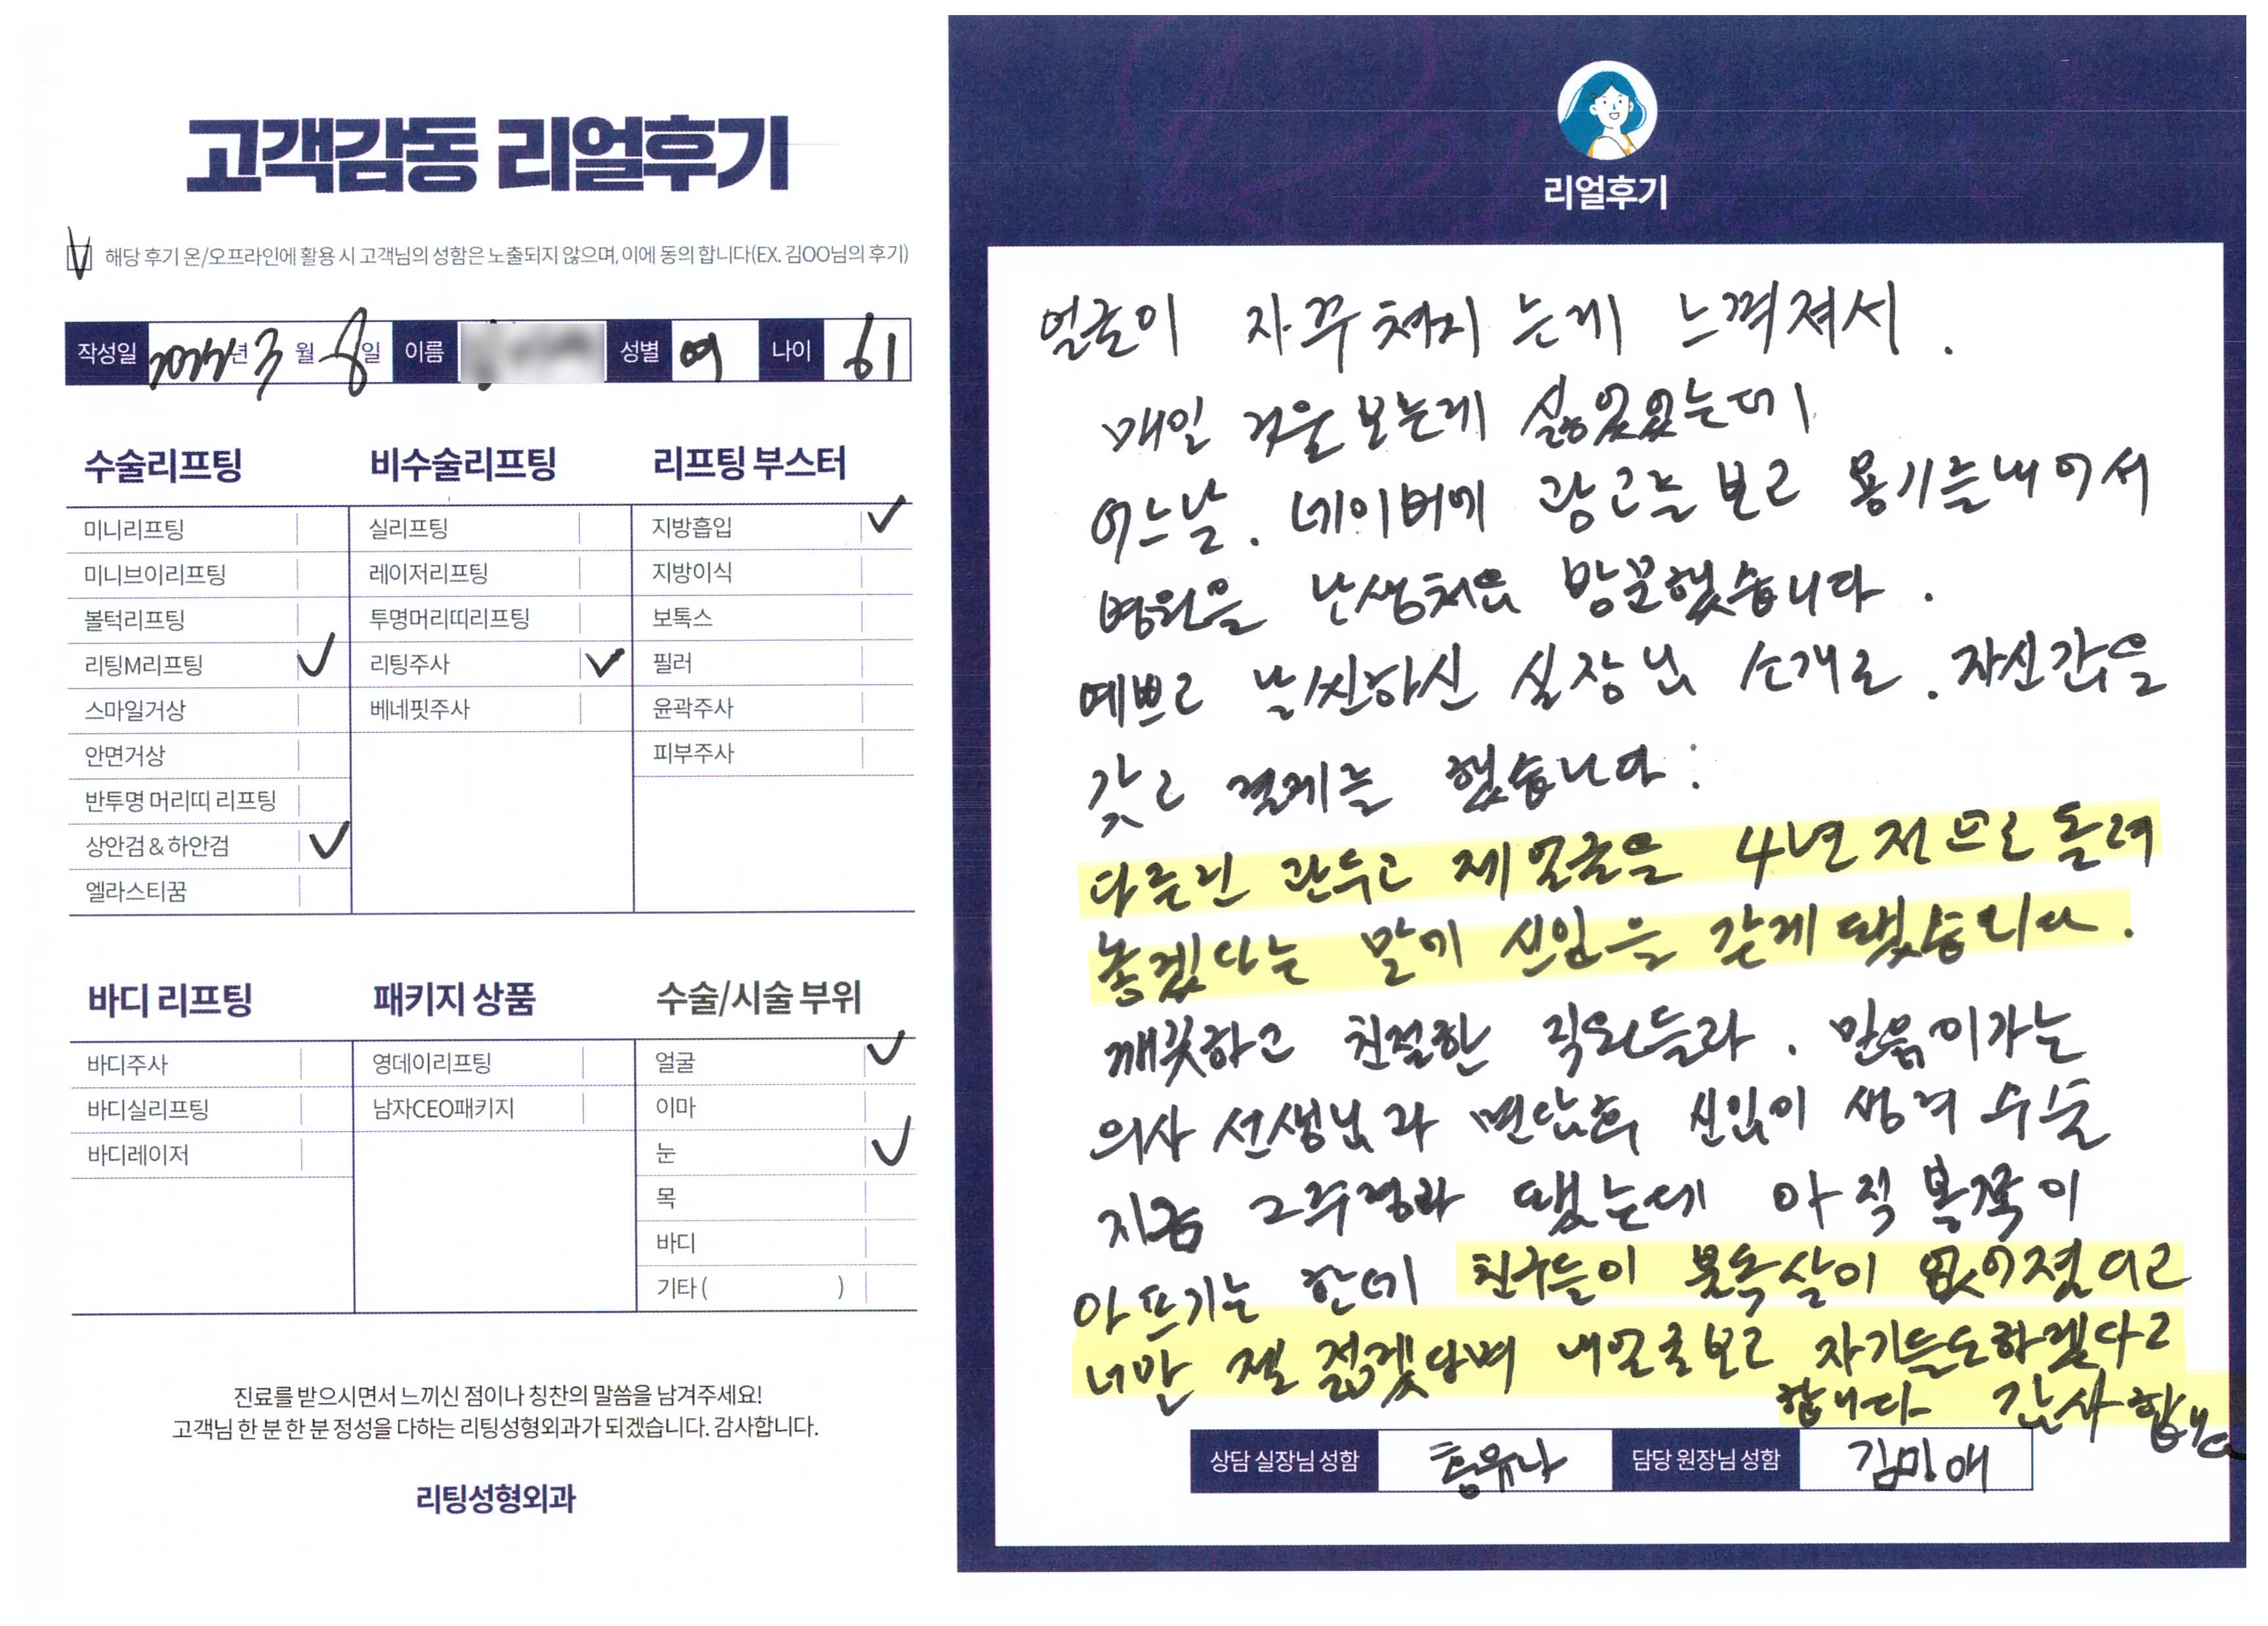 고객감동 리얼후기
해당 후기 온/오프라인에 활용 시 고객님의 성함은 노출되지 않으며, 이에 동의 합니다(EX. 김OO님의 후기)
작성일 년 3 월 8일 이름 성별 여 나이 61
수술리프팅
미니리프팅
미니브이리프팅
볼턱리프팅
리팅M리프팅
스마일거상
안면거상
반투명 머리띠 리프팅
상안검 & 하안검
엘라스티꿈
비수술리프팅
실리프팅
레이저리프팅
투명머리띠리프팅
리팅주사
베네핏주사
리프팅 부스터
지방흡입
지방이식
보톡스
필러
윤곽주사
피부주사
바디 리프팅
바디주사
바디실리프팅
바디레이저
패키지 상품
영데이리프팅
남자CEO패키지
수술/시술 부위
얼굴
이마
눈
목
바디
기타 ( )
진료를 받으시면서 느끼신 점이나 칭찬의 말씀을 남겨주세요!
고객님 한 분 한 분 정성을 다하는 리팅성형외과가 되겠습니다. 감사합니다.
리팅성형외과
리얼후기
얼굴이 자꾸 처지는게 느껴져서.
매일 거울 보는게 싫었었는데
어느날. 네이버에 광고를 보고 용기를내어서
병원을 난생처음 방문했습니다.
예쁘고 날씬하신 실장님 소개로. 자신감을
갖고 결제를 했습니다.
다른건 관두고 제얼굴을 4년 전으로 돌려
놓겠다는 말에 신임을 갖게 됐습니다.
깨끗하고 친절한 직원들과. 믿음이가는
의사 선생님과 면담후 신임이 생겨 수술
지금 2주경과 됐는데 아직 볼쪽이
아프기는 한데 친구들이 불독살이 없어졌다고
너만 젤 젊겠다며 내얼굴보고 자기들도하겠다고
합니다 감사합니다
상담 실장님 성함 홍유나 담당 원장님 성함 김민애